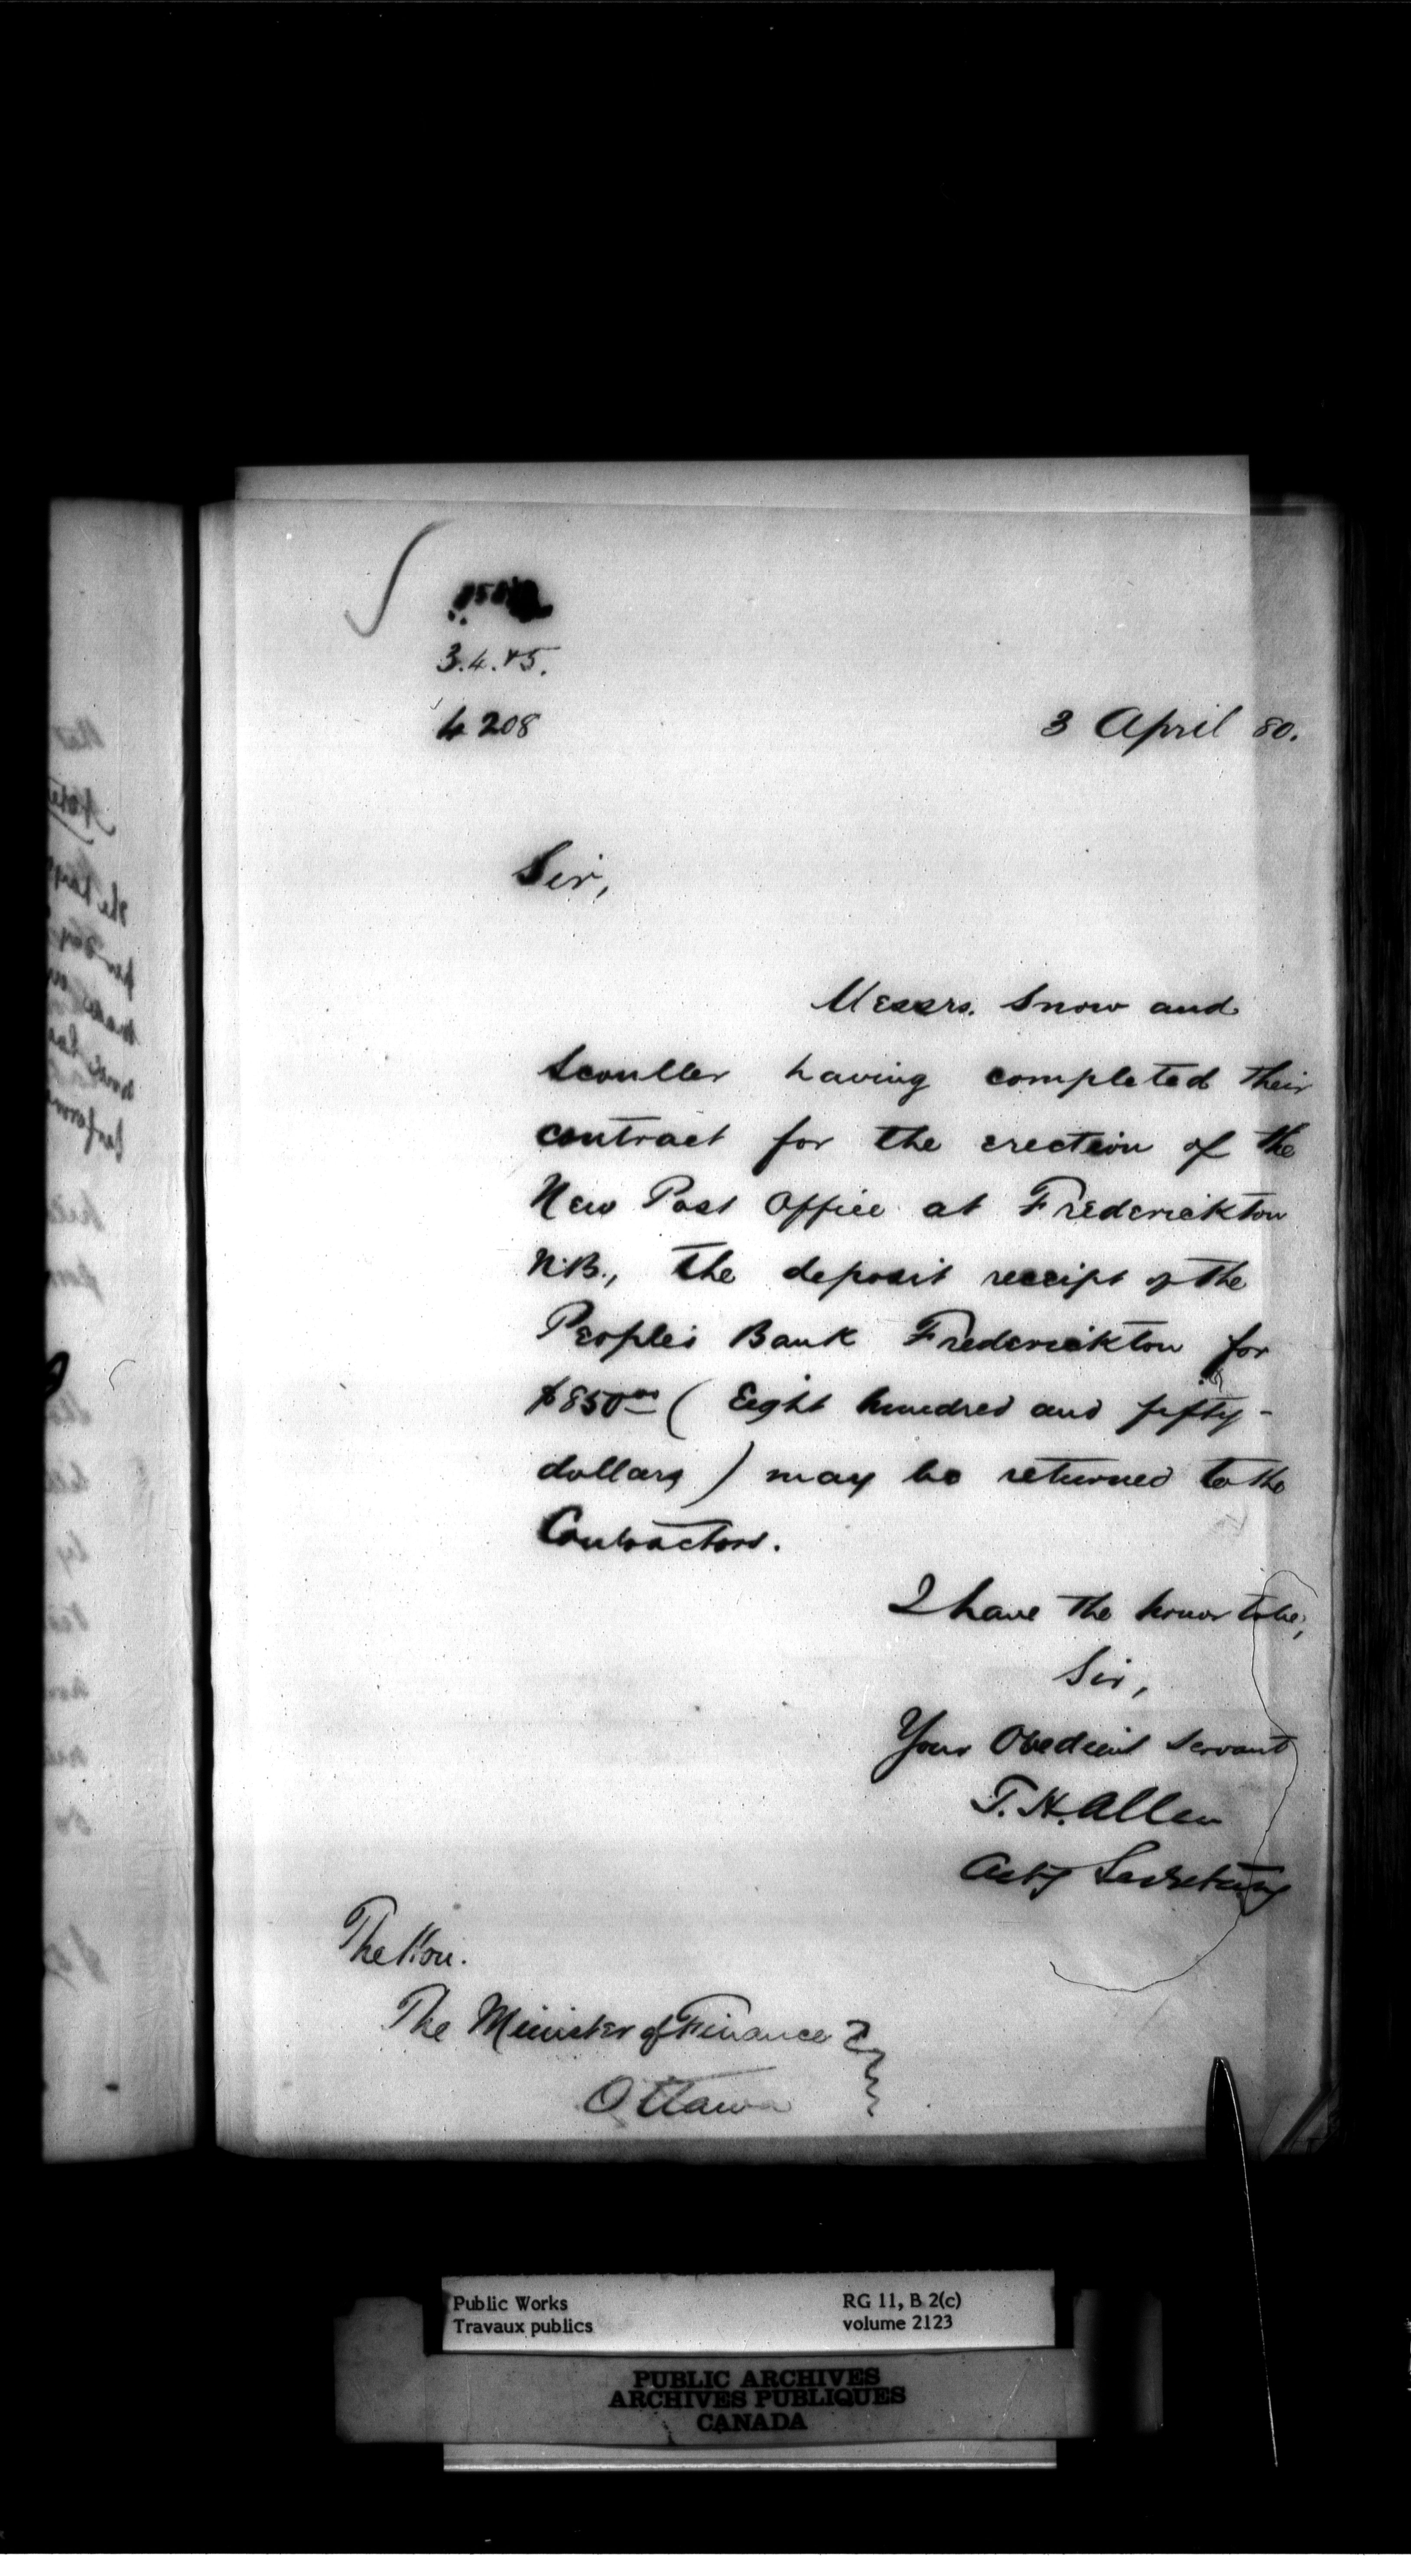 4208
3 April 80.
Sir,
Messrs. Snow and
Scouller having completed their
contract for the erection of the
New Post Office at Frederickton
N.B., the deposit receipt of the
People's Bank Frederickton for
$850.00 ( Eight hundred and fifty -
dollars ) may be returned to the
Contractors.
I have the honor to be,
Sir,
Your Obedient Servant
T. H. Allen
Actg Secretary
The Hon.
The Minister of Finance
Ottawa
Public Works
Travaux publics
RG 11, B 2(c)
volume 2123
PUBLIC ARCHIVES
ARCHIVES PUBLIQUES
CANADA